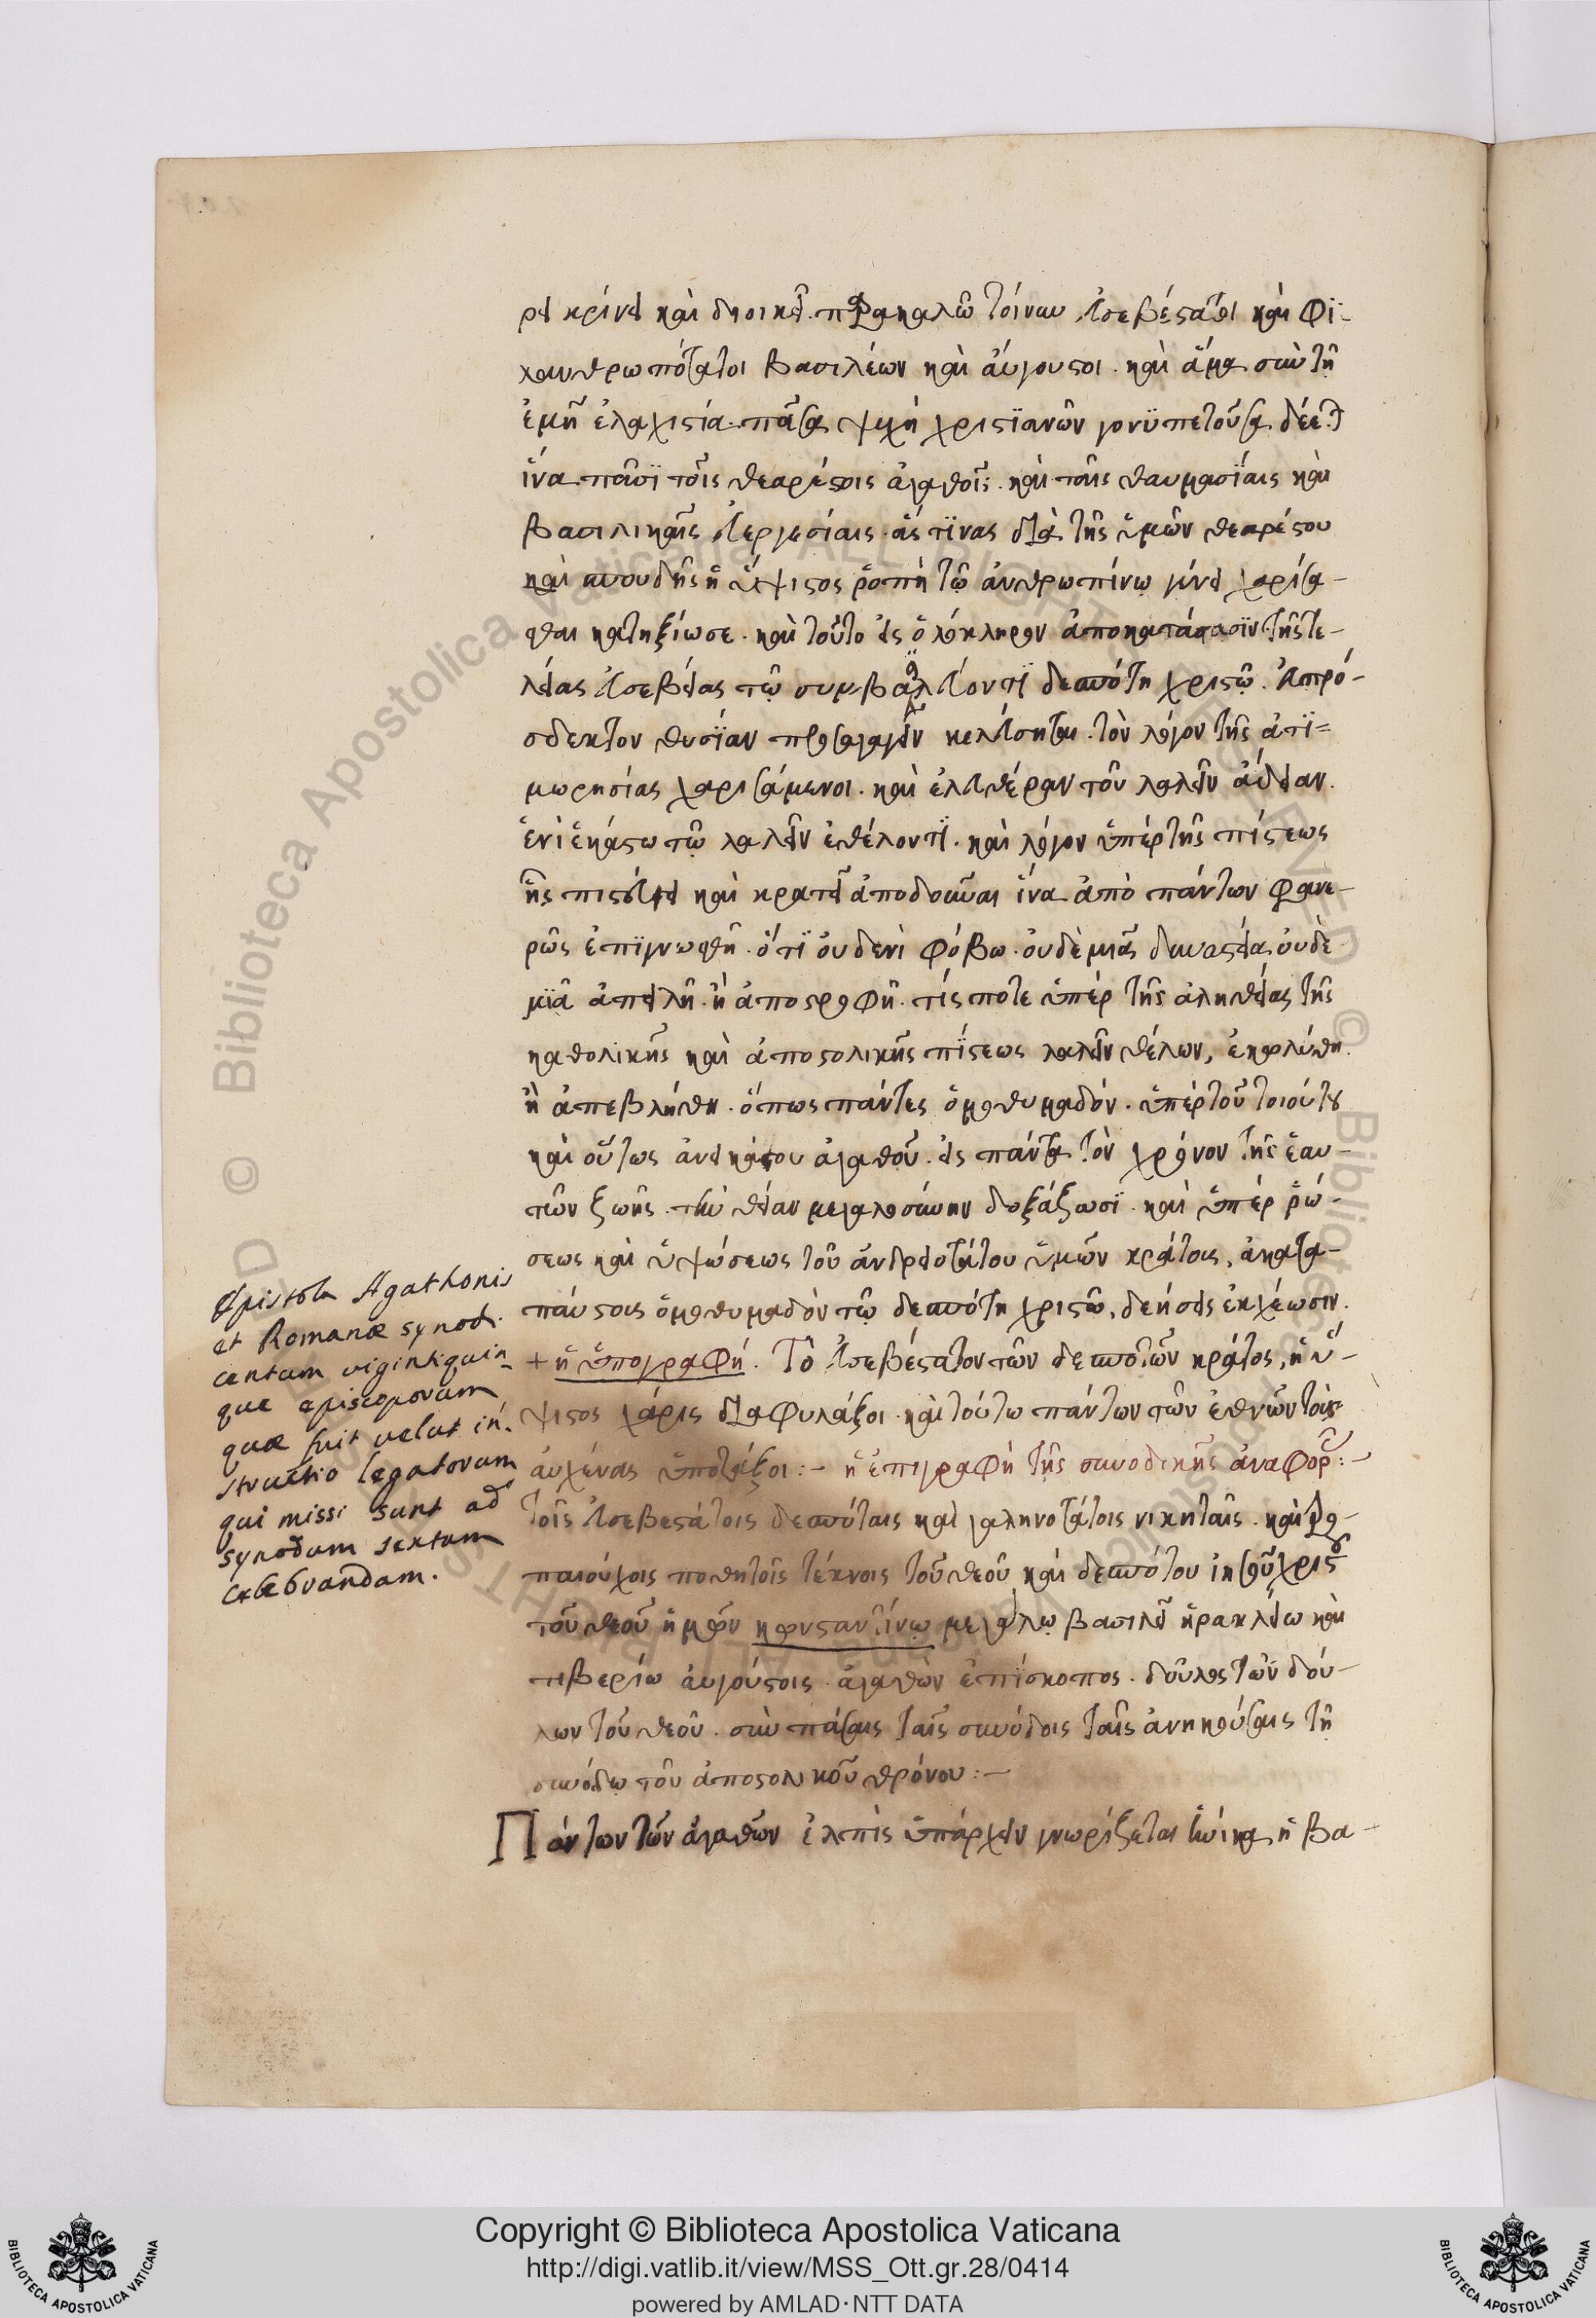 ρει κρίνει καὶ διοικεῖ. παρακαλῶ τοίνυν εὐσεβέστατοι καὶ φϊ-
λανθρωπότατοι βασιλέων καὶ ἀύγουστοι. καὶ ἅμα σὺν τῆ
ἐμῆ ἐλαχιστία. πᾶσα ψυχὴ χριστϊανῶν γονϋπετοῦσα δέεται
ἵνα πᾶσϊ τοῖς θεαρέστοις ἀγαθοῖς. καὶ ταῖς θαυμασϊαις καὶ
βασιλικαῖς εὐεργεσίαις. ἅς τϊνας διὰ τῆς ὑμῶν θεαρέστου
καὶ σπουδῆς ἡ ὕψιστος ῥοπὴ τῶ ἀνθρωπίνω γένει χαρίσα-
σθαι κατηξίωσε. καὶ τοῦτο εἰς ὁλόκληρον ἀποκατάστασϊν τῆς τε-
λείας εὐσεβείας τῶ συμβασιλεύοντϊ δεσπότη χριστῶ. εὐπρό-
σδεκτον θυσϊαν προσαγαγεῖν κελεύσητε. τὸν λόγον τῆς ἀτϊ=
μωρησίας χαρισάμενοι. καὶ ἐλευθέραν τοῦ λαλεῖν ἄδειαν.
ἑνὶ ἑκάστω τῶ λαλεῖν ἐθέλοντϊ. καὶ λόγον ὑπὲρ τῆς πίστεως
ἧς πιστεύει καὶ κρατεῖ ἀποδοῦναι ἵνα ἀπὸ πάντων φανε-
ρῶς ἐπϊγνωσθῆ. ὅτϊ οὐδενὶ φόβω. οὐδὲ μιᾶ δυναστεία οὐδε
μϊᾶ ἀπειλῆ. ἢ ἀποστροφῆ. τίς ποτε ὑπὲρ τῆς ἀληθείας τῆς
καθολικῆς καὶ ἀποστολικῆς πίστεως λαλεῖν θέλων, ἐκωλύθη.
ἢ ἀπεβλήθη. ὅπως πάντες ὁμοθυμαδόν. ὑπὲρ τοῦ τοιούτου
καὶ οὕτως ἀνεικάστου ἀγαθοῦ. εἰς πάντα τὸν χρόνον τῆς ἑαυ-
τῶν ζωῆς. τὴν θείαν μεγαλοσύνην δοξάζωσϊ. καὶ ὑπὲρ ῥώ-
σεως καὶ ὑψώσεως τοῦ ἀνδρειοτάτου ὑμῶν κράτους, ἀκατα-
παύστους ὁμοθυμαδὸν τῶ δεσπότη χριστῶ, δεήσεις ἐκχέωσιν.
+ ἡ ὑπογραφή. Τὸ εὐσεβέστατον τῶν δεσποτῶν κράτος, ἡ ὕ-
ψιστος χάρις διαφυλάξοι. καὶ τούτω πάντων τῶν ἐθνῶν τοὺς
αὐχένας ὑποτάξοι:- ἡ ἐπιγραφὴ τῆς συνοδικῆς ἀναφορ:-
Τοῖς εὐσεβεστάτοις δεσπόταις καὶ γαληνοτάτοις νικηταῖς. καὶ τρο-
παιούχοις ποθητοῖς τέκνοις τοῦ θεοῦ καὶ δεσπότου ἰησοῦ χριστοῦ
τοῦ θεοῦ ἡμῶν κωνσταντίνω μεγάλω βασιλεῖ ἡρακλείω καὶ
τιβερίω ἀυγούστοις. ἀγαθὼν ἐπίσκοπος. δοῦλος τῶν δού-
λων τοῦ θεοῦ. σὺν πάσαις ταῖς συνόδοις ταῖς ἀνηκούσαις τῆ
συνόδω τοῦ ἀποστολικοῦ θρόνου:-
Πάντων τῶν ἀγαθῶν ἐλπὶς ὑπάρχειν γνωρίζεται ἡνίκα ἡ βα-
Epistola Agathonis
et Romanæ synodi
centum vigintiquin
que episcoporum
quæ fuit velut in-
structio legatorum
qui missi sunt ad
synodum sextam
celebrandam.
© Biblioteca Apostolica Vaticana ALL RIGHTS RESERVED
Copyright © Biblioteca Apostolica Vaticana
http://digi.vatlib.it/view/MSS_Ott.gr.28/0414
powered by AMLAD·NTT DATA
BIBLIOTECA APOSTOLICA VATICANA
BIBLIOTECA APOSTOLICA VATICANA